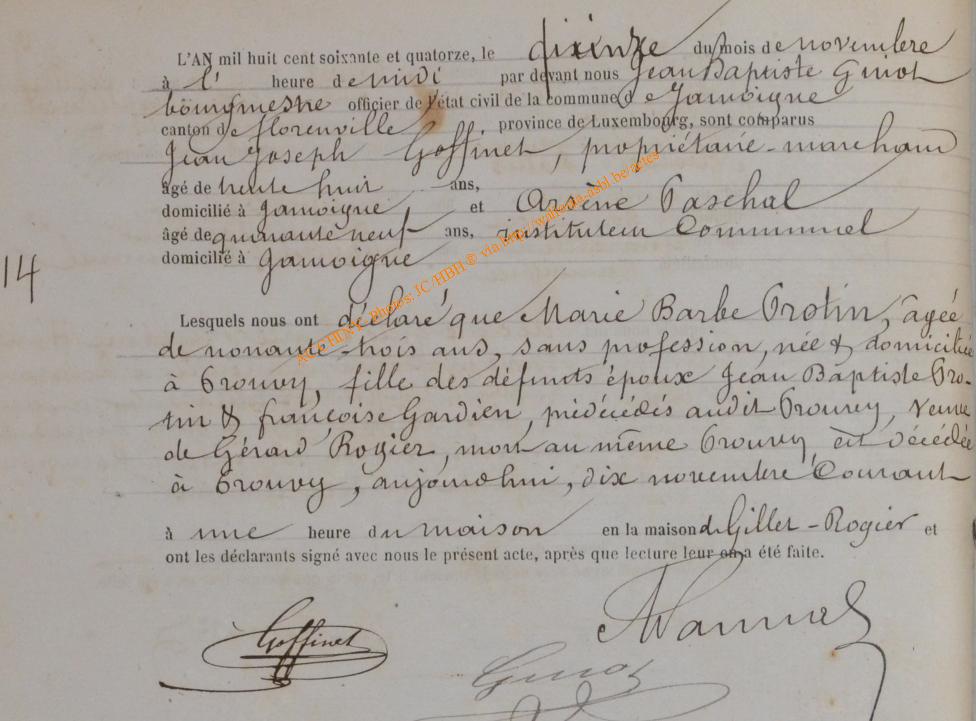 L'AN mil huit cent soixante et quatorze, le du mois de novembre
à l' heure de midi par devant nous Jean Baptiste Guiot
bourgmestre officier de l'état civil de la commune de Jamoigne
canton de Florenville, province de Luxembourg, sont comparus
Jean Joseph Goffinet, propriétaire-marchand
âgé de trente huit ans,
domicilié à Jamoigne et Arsène Paschal
âgé de quarante neuf ans, instituteur Communal
domicilié à Jamoigne
14
Lesquels nous ont déclaré que Marie Barbe Protin, agée
de nonante-trois ans, sans profession, née & domiciliée
à Prouvy, fille des défunts époux Jean Baptiste Pro-
tin & françoise Gardien, prédécédés audit Prouvy, veuve
de Gérard Rogier, mort au même Prouvy, est décédée
à Prouvy, aujourd'hui, dix novembre Courant
à une heure du en la maison de Gillet-Rogier et
ont les déclarants signé avec nous le présent acte, après que lecture leur en a été faite.
Goffinet
Guiot
Acte HLN & Photos: JC/HBH © via http://www.hln-asbl.be/actes